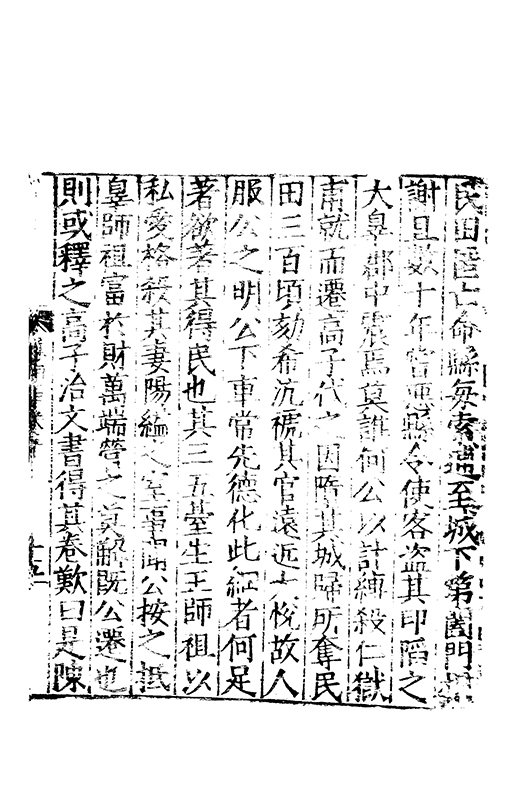 民田匿亡命縣每索逋至城下第闔門
謝且數十年嘗逐縣令使客盗其印陷之
大辠郡中震焉莫誰何公以計縛殺仁獄
甫就而遷高子代之因隳其城歸所奪民
田三百頃劾希沆褫其官遠近大悅故人
服公之明公下車常先德化此紅者何足
著欲著其得民也其三五臺生王師祖以
私愛格殺其妻陽縊之室事聞公按之抵
辠師祖富於財萬端營之莫解既公遷也
則或釋之高子治文書得其卷歎曰是陳